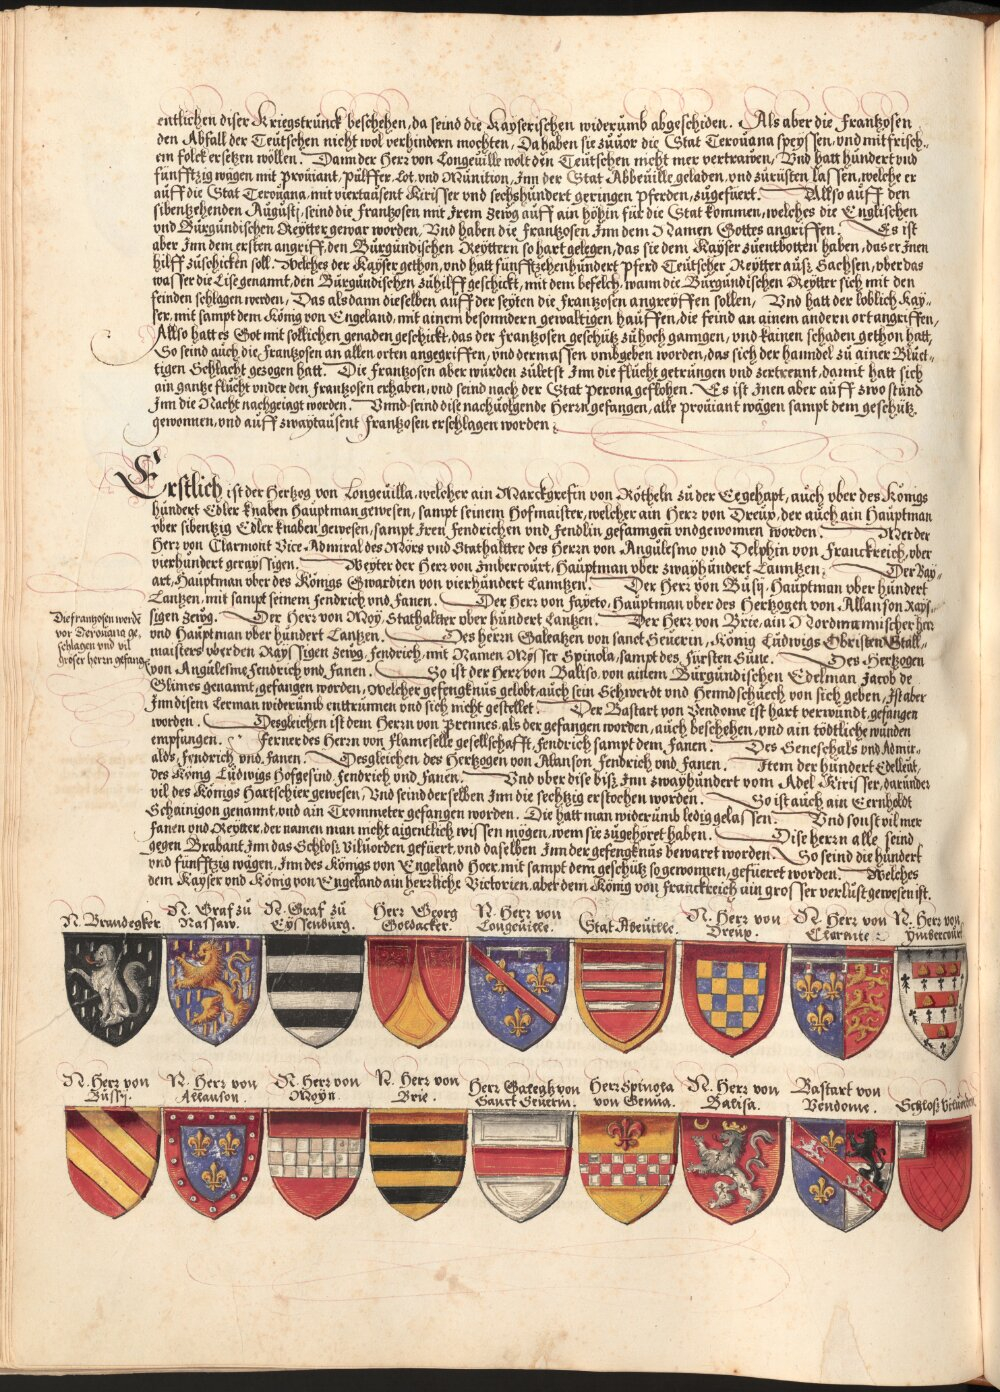 entlichen diser Kriegstrünck beschehen, da seind die Kayserischen widerumb abgeschiden. Als aber die Frantzosen
den Abfall der Teütschen nicht wol verhindern mochten, Da haben sie züüor die Stat Teroüana speyssen, und mit frisch„
em Folck ersetzen wöllen. Dann der Herr von Longeüille wolt den Teütschen nicht mer vertrawen, Vnd hatt hündert und
fünfftzig wägen mit proüiant, pülffer, Lot, und Münition, Inn der Stat Abbeüille geladen, und zürüsten lassen, welche er
auff die Stat Teroüana, mit viertausent Kirisser und sechshündert geringen Pferden, zügefüert. Allso auff den
sibentzehenden Aügusti, seind die Frantzosen mit Irem zeüg auff ain höhin für die Stat kommen, welches die Englischen
und Bürgündischen Reytter gewar worden, Vnd haben die Frantzosen Inn dem Namen Gottes angriffen. Es ist
aber Inn dem ersten angriff, den Bürgündischen Reyttern so hart gelegen, das sie dem Kayser züentbotten haben, das er Inen
hilff züschicken soll. Welches der Kayser gethon, und hatt fünfftzehenhündert pferd Teütscher Reytter aüsz Sachsen, über das
wasser die Lise genannt, den Bürgündischen zühilff geschickt, mit dem befelch, wann die Bürgündischen Reytter sich mit den
feinden schlagen werden, Das alsdann dieselben auff der seyten die Frantzosen angreyffen sollen, Vnd hatt der löblich Kay„
ser, mit sampt dem König von Engeland, mit ainem besonndern gewaltigen haüffen, die feind an ainem andern ort angriffen,
Allso hatt es Got mit sollichen genaden geschickt, das der Frantzosen geschütz zü hoch ganngen, und kainen schaden gethon hatt,
So seind auch die Frantzosen an allen orten angegriffen, und dermassen umbgeben worden, das sich der hanndel zü ainer Blüt„
tigen Schlacht gezogen hatt. Die Frantzosen aber würden zületst Inn die flücht getrüngen und zertrennt, damit hatt sich
ain gantze flücht under den Frantzosen erhaben, und seind nach der Stat Perona geflohen. Es ist Inen aber auff zwo stünd
Inn die Nacht nachgeiagt worden. Vnnd seind dise nachuolgende Herrn gefangen, alle proüiant wägen sampt dem geschütz
gewonnen, und auff zwaytaüsent Frantzosen erschlagen worden.
Erstlich ist der Hertzog von Longeüilla, welcher ain Marckgrefin von Rötheln zü der Ee gehapt, auch über des Königs
hündert Edler knaben Hauptman gewesen, sampt seinem Hofmaister, welcher ain Herr von Dreüx, der auch ain Hauptman
über sibentzig Edler knaben gewesen, sampt Iren Fendrichen und Fendlin gefanngen und gewonnen worden. Mer der
Herr von Clarmont Vice Admiral des Mörs und Stathaltter des Herrn von Angülesmo und Delphin von Franckreich, über
vierhündert gerayssigen. Weyter der Herr von Imbercourt, Hauptman über zwayhündert Lanntzen. Der Bay„
art, Hauptman über des Königs Gwardien von vierhündert Lanntzen. Der Herr von Büsy, Hauptman über hündert
Lantzen, mit sampt seinem Fendrich und Fanen. Der Herr von Fayeto, Hauptman über des Hertzogen von Allanson Rays„
sigen zeüg. Der Herr von Moy, Stathaltter über hündert Lantzen. Der Herr von Brie, ain Nordmannischer herr
und Hauptman über hündert Lantzen. Des herrn Galeatzen von sanct Seüerin, König Lüdwigs Obristen Stall„
maisters über den Rayssigen zeüg, Fendrich, mit Namen Mysser Spinola, sampt des Fürsten Süne. Des Hertzogen
von Angülesme Fendrich und Fanen. So ist der Herr von Baliso, von ainem Bürgündischen Edelman Jacob de
Glimes genannt, gefangen worden, Welcher gefengknüs gelobt, auch sein Schwerdt und Henndschüech von sich geben, Ist aber
Inn disem Lerman widerumb enttrunnen und sich nicht gestellet. Der Bastart von Vendome ist hart verwündt, gefangen
worden. Desgleichen ist dem Herrn von Prennes, als der gefangen worden, auch beschehen, und ain tödtliche wünden
empfangen. Ferner des Herrn von Flameselle gesellschafft, Fendrich sampt dem Fanen. Des Seneschals und Admir„
alds, Fendrich und Fanen. Desgleichen des Hertzogen von Alanson Fendrich und Fanen. Item der hündert Edelleüt,
des König Lüdwigs Hofgesind, Fendrich und Fanen. Vnd über dise bisz Inn zwayhündert vom Adel Kirisser, darunder
vil des Königs Hartschier gewesen, Vnd seind derselben Inn die sechtzig erstochen worden. So ist auch ain Eernholdt
Schainigon genannt, und ain Trommeter gefangen worden. Die hatt man widerumb ledig gelassen. Vnd sonst vil mer
Fanen und Reytter, der namen man nicht aigentlich wissen mögen, wem sie zügehöret haben. Dise herrn alle seind
gegen Brabant, Inn das Schlosz Viluorden gefüert, und daselben Inn der gefengknüs bewaret worden. So seind die hündert
und fünfftzig wägen, Inn des Königs von Engeland Hoer, mit sampt dem geschütz so gewonnen, gefüeret worden. Welches
dem Kayser und König von Engeland ain herrliche Victorien, aber dem König von Franckreich ain grosser verlüst gewesen ist.
Die frantzosen werde
vor Derouana ge„
schlagen und vil
groser herrn gefang
N. Brandegker.
N. Graf zü
Nassaw.
N. Graf zü
Eyssenbürg.
Herr Georg
Goldacker.
N. Herr von
Longeüille.
Stat Abeüille.
N. Herr von
Dreüx.
N. Herr von
Clarmte
N. Herr von
Ymbercourt
N. Herr von
Büssy.
N. Herr von
Allanson.
N. Herr von
Moyn.
N. Herr von
Brie.
Herr Galeatz von
Sanct Seüerin.
Herr Spinola
von Genüa.
N. Herr von
Balisa.
Bastart von
Vendome.
Schlosz Vilworden.